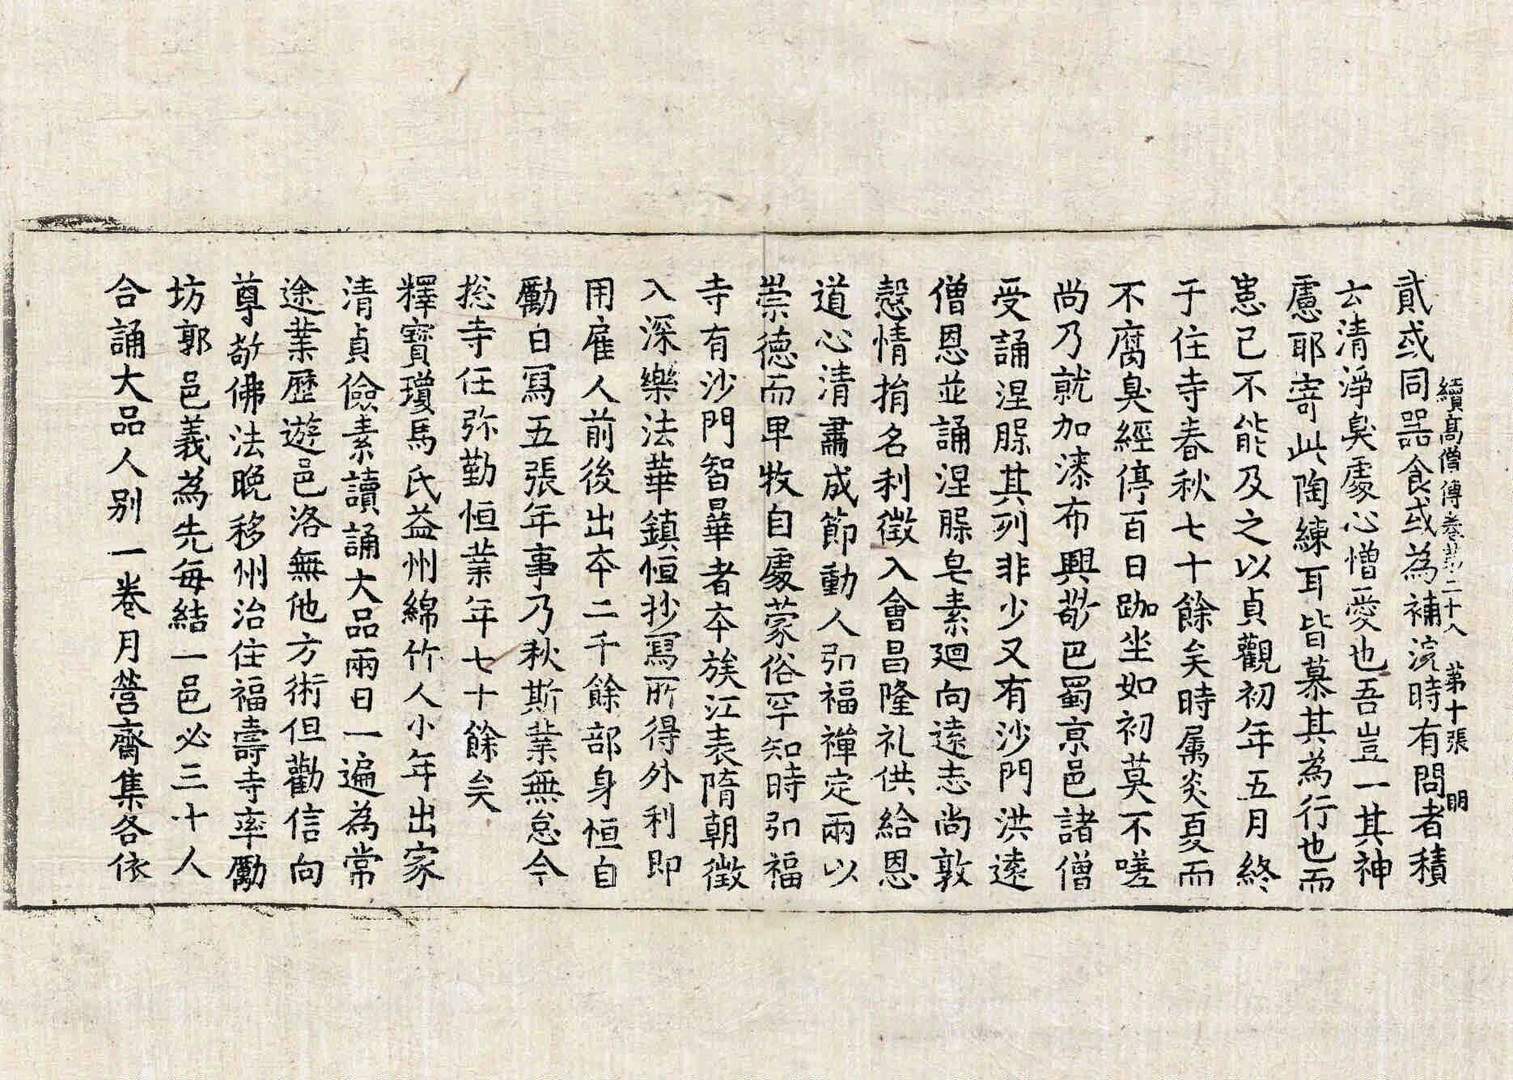 續高僧傳卷苐二十八 苐十張 明
貳或同器食或為補浣時有問者積
云清淨臭處心憎愛也吾豈一其神
慮耶寄此陶練耳皆慕其為行也而
患己不能及之以貞觀初年五月終
于住寺春秋七十餘矣時属炎夏而
不腐臭經停百日跏坐如初莫不嗟
尚乃就加漆布興敬巴蜀京邑諸僧
受誦涅脲其列非少又有沙門洪遠
僧恩並誦涅脲皂素廻向遠志尚敦
慤情捐名利徵入會昌隆礼供給恩
道心清肅成節動人引福禪定兩以
崇德而卑牧自處蒙俗罕知時引福
寺有沙門智曅者夲族江表隋朝徵
入深樂法華鎮恒抄寫所得外利即
用雇人前後出夲二千餘部身恒自
勵日寫五張年事乃秋斯業無怠今
㧾寺任弥勤恒業年七十餘矣
釋寶瓊馬氏益州綿竹人小年出家
清貞儉素讀誦大品兩日一遍為常
途業歷遊邑洛無他方術但勸信向
尊敬佛法晚移州治住福壽寺率勵
坊郭邑義為先每結一邑必三十人
合誦大品人别一卷月營齋集各依